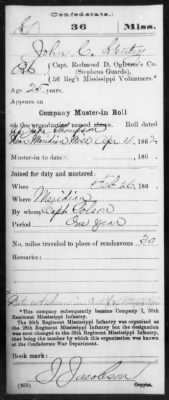 Confederate.
36
Miss.
John C.
Pvt, Capt. Redmond D. Ogletree's Co.
(Stephens Guards),
36 Reg't Mississippi Volunteers.*
Age 25 years.
Appears on
Company Muster-in Roll
of the organization named above. Roll dated
Near Meridian, Miss Apr 11, 1862.
Muster-in to date , 186 .
Joined for duty and mustered:
When Feb 26, 186 .
Where Meridian
By whom Capt
Period One year
No. miles traveled to place of rendezvous 30
Remarks:
*This company subsequently became Company I, 36th
Regiment Mississippi Infantry.
The 36th Regiment Mississippi Infantry was organized as
the 28th Regiment Mississippi Infantry but the designation
was soon changed to the 36th Regiment Mississippi Infantry,
that being the number by which this organization was known
at the Confederate War Department.
Book mark:
J. Jacobson
Copyist.